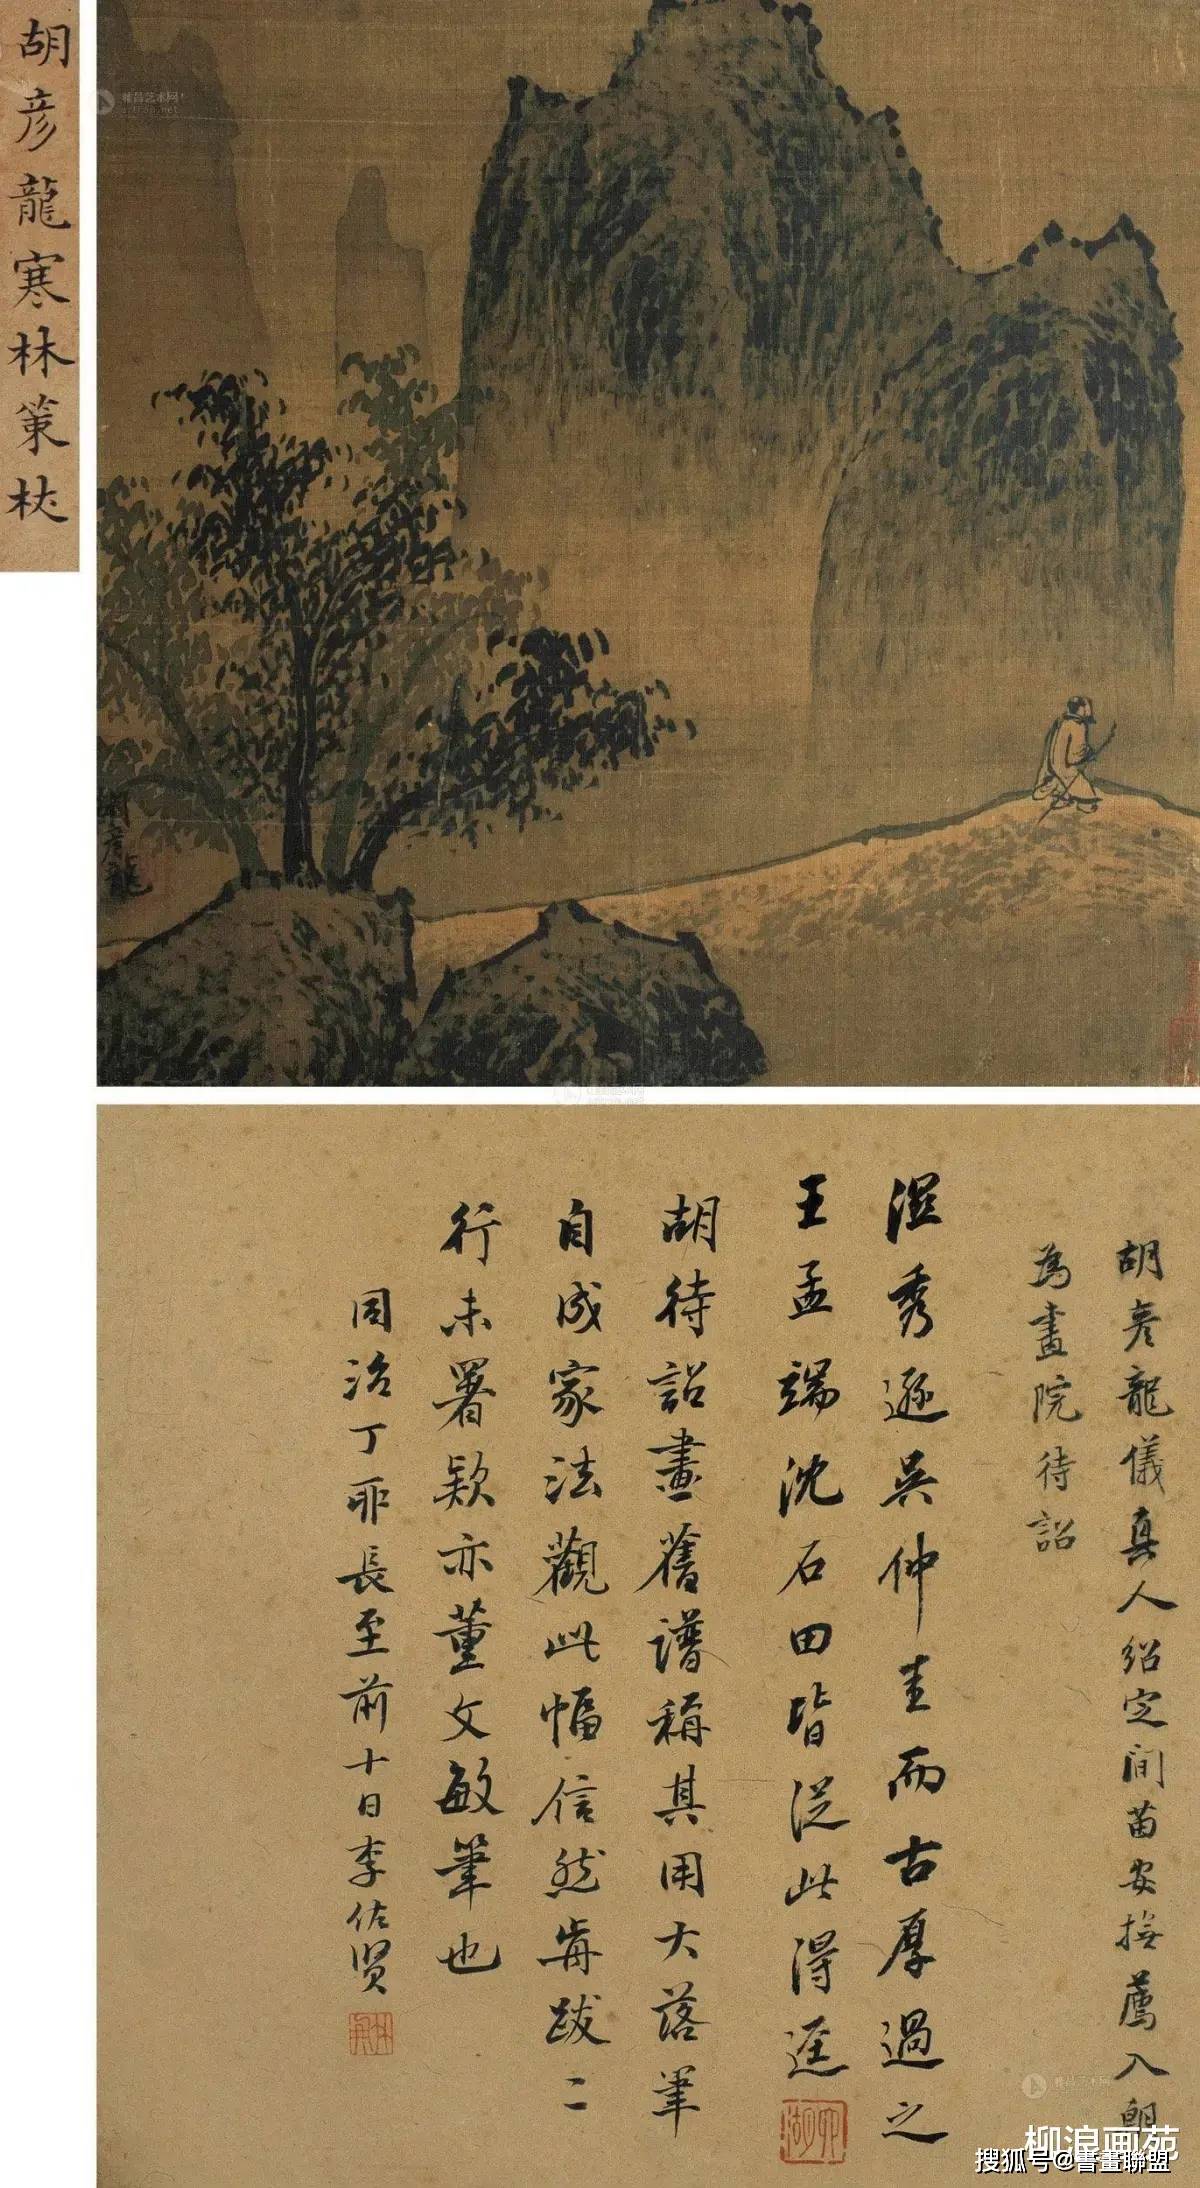 胡彥龍寒林策杖
雅昌艺术网
artron.net
胡彥龍
胡彥龍儀真人紹定間苗安撫薦入朝
為畫院待詔
溼秀遜吳仲圭而古厚過之
王孟端沈石田皆從此得逕
胡待詔畫舊譜稱其用大落筆
自成家法觀此幅信然耑跋二
行未署款亦董文敏筆也
同治丁卯長至前十日李佐賢
柳浪画苑
搜狐号@書畫聯盟